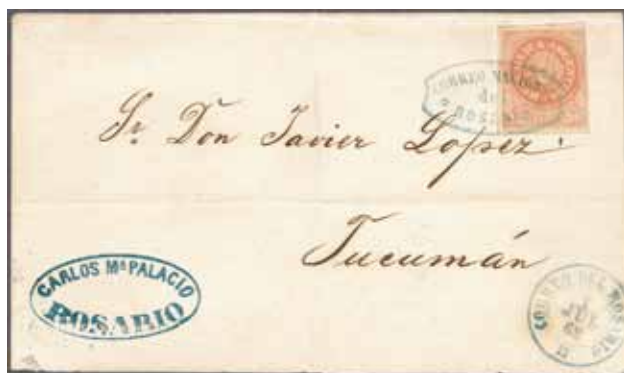 CORREO NACIONAL
de
ROSARIO
Sr. Don Javier Lopez.
Tucumán
CARLOS Mª PALACIO
ROSARIO
CORREO DEL ROSARIO
JUL